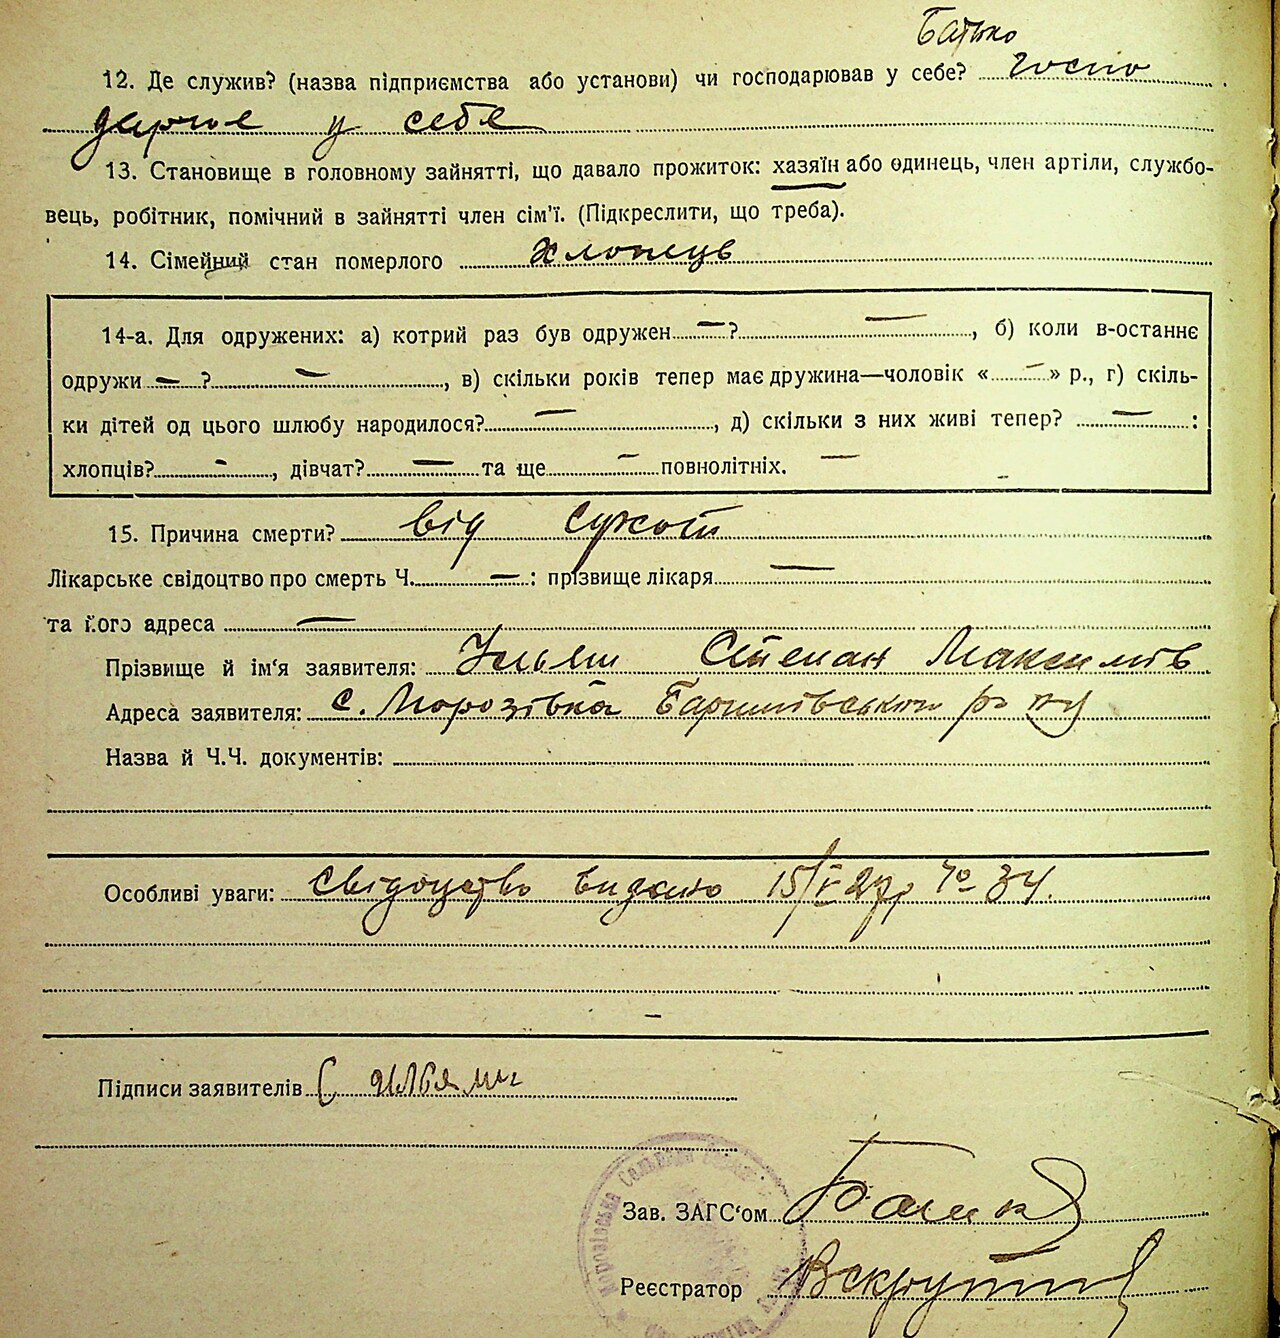 Батько
12. Де служив? (назва підприємства або установи) чи господарював у себе? Госпо
дарює у себе
13. Становище в головному зайнятті, що давало прожиток: хазяїн або одинець, член артіли, службо-
вець, робітник, помічний в зайнятті член сім'ї. (Підкреслити, що треба).
14. Сімейний стан померлого хлопець
14-а. Для одружених: а) котрий раз був одружен — ? —, б) коли в-останнє
одружи — ? —, в) скільки років тепер має дружина—чоловік «—» р., г) скіль-
ки дітей од цього шлюбу народилося? —, д) скільки з них живі тепер? — :
хлопців? -, дівчат? — та ще — повнолітніх. —
15. Причина смерти? від сухот
Лікарське свідоцтво про смерть Ч. — : прізвище лікаря —
та його адреса —
Прізвище й ім'я заявителя: Ульян Степан Максимів
Адреса заявителя: с. Морозівка Баришівського р-ну
Назва й Ч.Ч. документів:
Особливі уваги: Свідоцтво видано 15/V 27р № 34.
Підписи заявителів С
Зав. ЗАГС'ом
Реєстратор